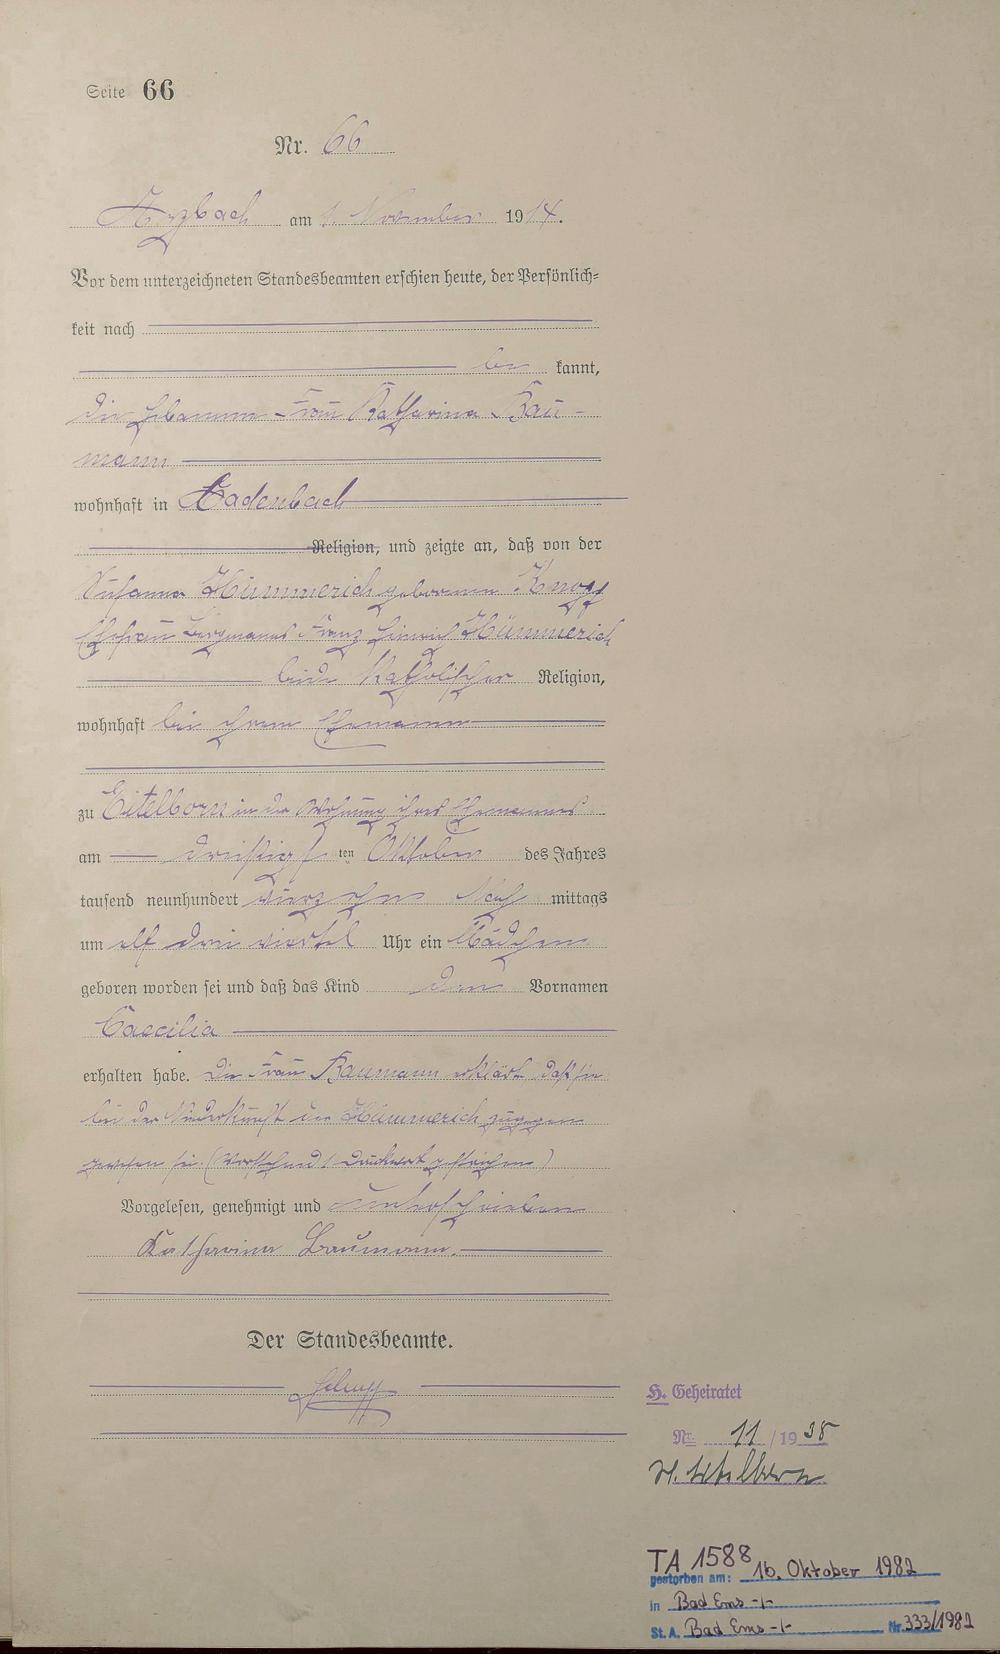 Seite 66
Nr. 66
Arzbach am 1. November 1914.
Vor dem unterzeichneten Standesbeamten erschien heute, der Persönlich=
keit nach
be kannt,
die Hebamme Frau Katharina Bau-
mann
wohnhaft in Kadenbach
Religion, und zeigte an, daß von der
Susanna Hümmerich geborenen Knopp
Ehefrau Bergmanns Franz Heinrich Hümmerich
beide Katholischer Religion,
wohnhaft bei ihrem Ehemanne
zu Eitelborn in der Wohnung ihres Ehemannes
am dreißigsten Oktober des Jahres
tausend neunhundert vierzehn Nach mittags
um elf drei viertel Uhr ein Mädchen
geboren worden sei und daß das Kind den Vornamen
Caecilia
erhalten habe. Die Frau Baumann erklärt daß sie
bei der Niederkunft der Hümmerich zugegen
gewesen sei. (Vorstehend 1 Druckwort gestrichen)
Vorgelesen, genehmigt und unterschrieben
Katharina Baumann.
Der Standesbeamte.
H. Geheiratet
Nr. 11/1938
TA 1588
gestorben am: 16. Oktober 1982
in Bad Ems -/-
St.A. Bad Ems -/- Nr. 333/1982